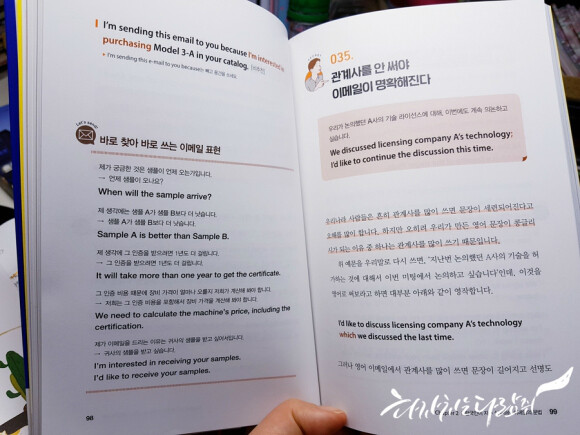 I'm sending this email to you because I'm interested in
purchasing Model 3-A in your catalog.
Let's email!
바로 찾아 바로 쓰는 이메일 표현
제가 궁금한 것은 샘플이 언제 오는가입니다.
→ 언제 샘플이 오나요?
When will the sample arrive?
제 생각에는 샘플 A가 샘플 B보다 더 낫습니다.
→ 샘플 A가 샘플 B보다 더 낫습니다.
Sample A is better than Sample B.
제 생각에 그 인증을 받으려면 1년도 더 걸립니다.
→ 그 인증을 받으려면 1년도 더 걸립니다.
It will take more than one year to get the certificate.
그 인증 비용 때문에 장비 가격이 얼마나 오를지 저희가 계산해 봐야 합니다.
→ 저희는 그 인증 비용을 포함해서 장비 가격을 계산해 봐야 합니다.
We need to calculate the machine's price, including the
certification.
제가 이메일을 드리는 이유는 귀사의 샘플을 받고 싶어서입니다.
→ 귀사의 샘플을 받고 싶습니다.
I'm interested in receiving your samples.
I'd like to receive your samples.
98
035.
관계사를 안 써야
이메일이 명확해진다
우리가 논의했던 A사의 기술 라이선스에 대해, 이번에도 계속 의논하고
싶습니다.
We discussed licensing company A's technology;
I'd like to continue the discussion this time.
우리나라 사람들은 흔히 관계사를 많이 쓰면 문장이 세련되어진다고
오해를 많이 합니다. 하지만 오히려 우리가 만든 영어 문장이 콩글리
시가 되는 이유 중 하나는 관계사를 많이 쓰기 때문입니다.
위 예문을 우리말로 다시 쓰면, '지난번 논의했던 A사의 기술을 허
가하는 것에 대해서 이번 미팅에서 논의하고 싶습니다'인데, 이것을
영어로 써보라고 하면 대부분 아래와 같이 영작합니다.
I'd like to discuss licensing company A's technology
which we discussed the last time.
그러나 영어 이메일에서 관계사를 많이 쓰면 문장이 길어지고 선명도
99